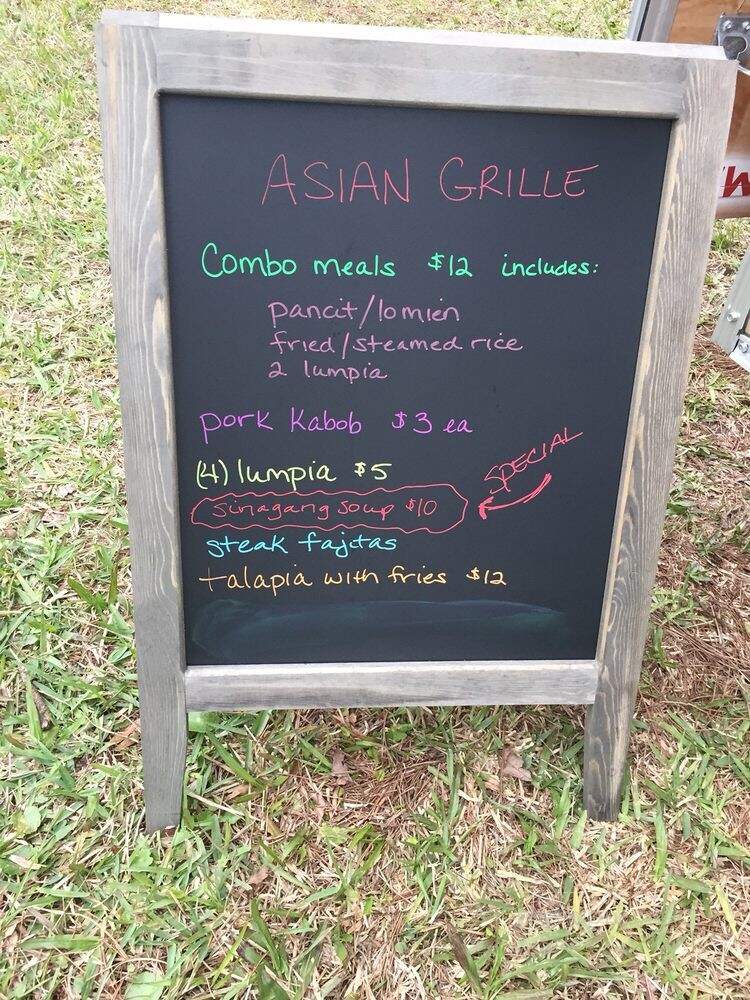 ASIAN GRILLE
Combo meals $12 includes:
pancit/lomien
fried/steamed rice
2 lumpia
pork kabob $3 ea
(4) lumpia $5
SPECIAL
Sinagang Soup $10
steak fajitas
talapia with fries $12